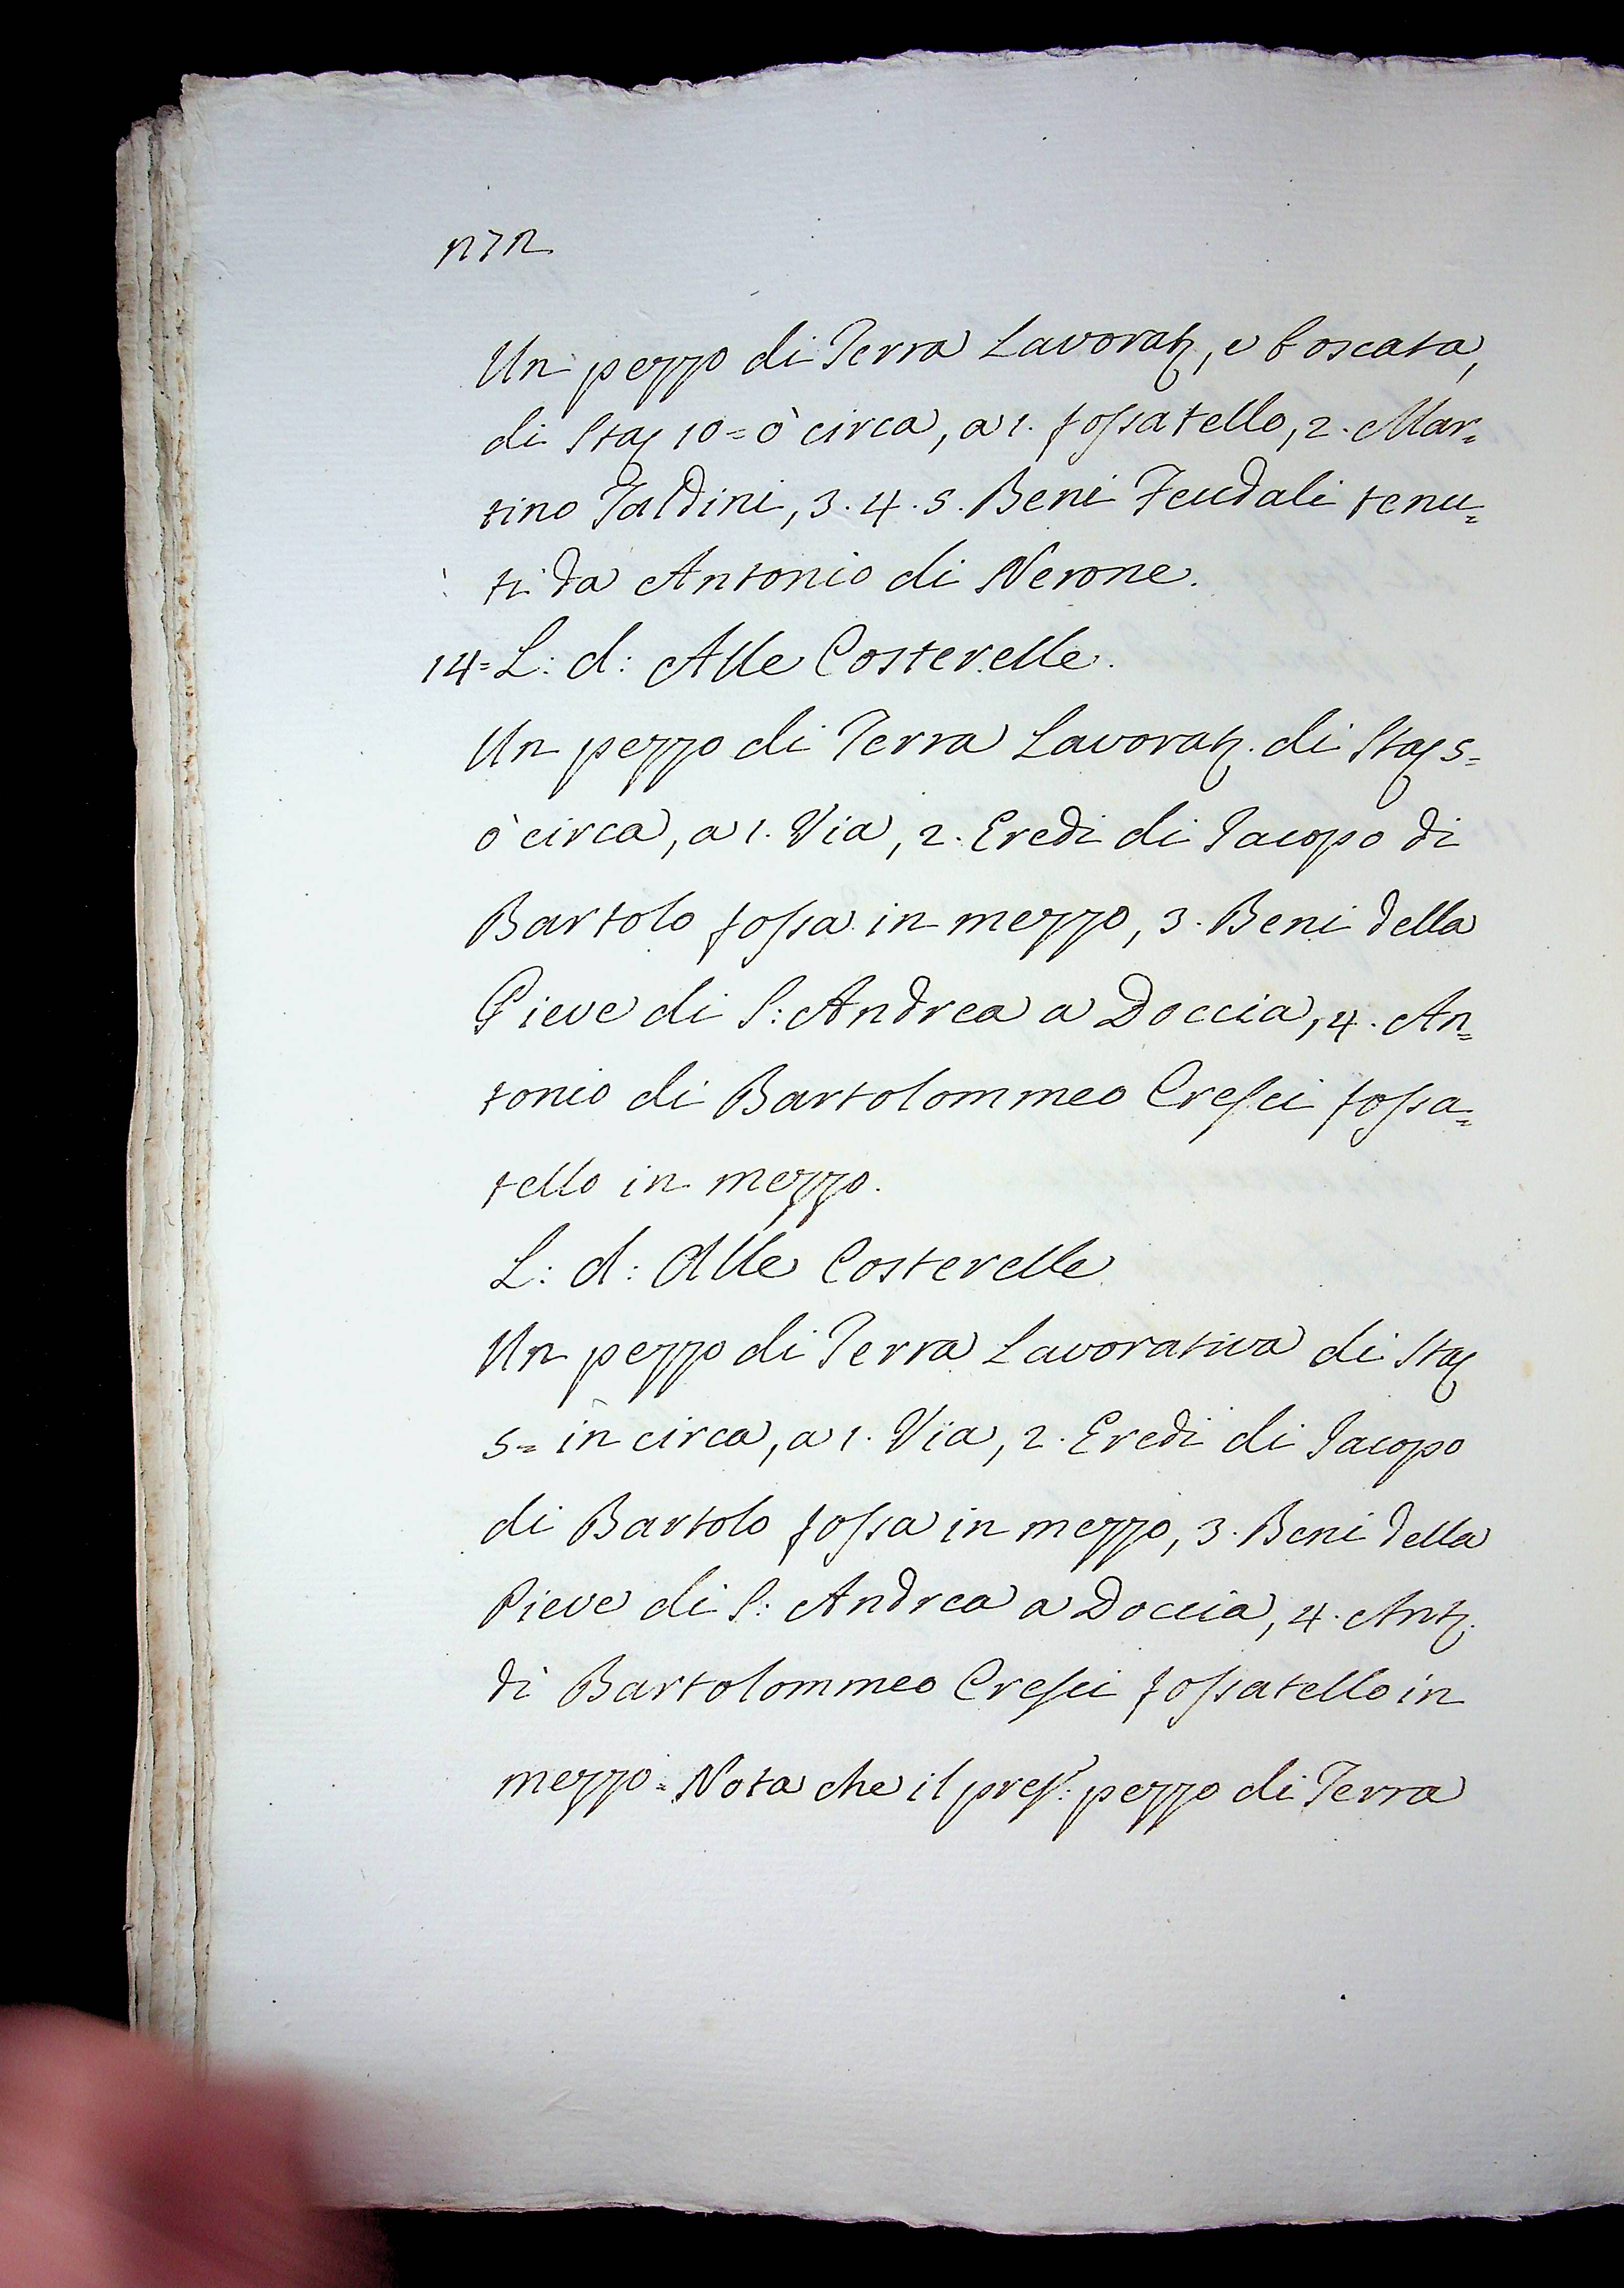 Un pezzo di Terra Lavorat:, e boscata,
di Sta: 10 = ò circa, a 1. fossatello, 2. Mar=
tino Taldini, 3. 4. 5. Beni Feudali tenu=
ti da Antonio di Nerone.
14 = L: d: Alle Costerelle.
Un pezzo di Terra Lavorat:. di Sta: 5 =
ò circa, a 1. Via, 2. Eredi di Jacopo di
Bartolo fossa in mezzo, 3. Beni della
Pieve di S: Andrea a Doccia, 4. An=
tonio di Bartolommeo Cresci fossa=
tello in mezzo.
L: d: Alle Costerelle
Un pezzo di Terra Lavorativa di Sta:
5 = in circa, a 1. Via, 2. Eredi di Jacopo
di Bartolo fossa in mezzo, 3. Beni della
Pieve di S: Andrea a Doccia, 4. Ant:.
di Bartolommeo Cresci fossatello in
mezzo = Nota che il pres: pezzo di Terra